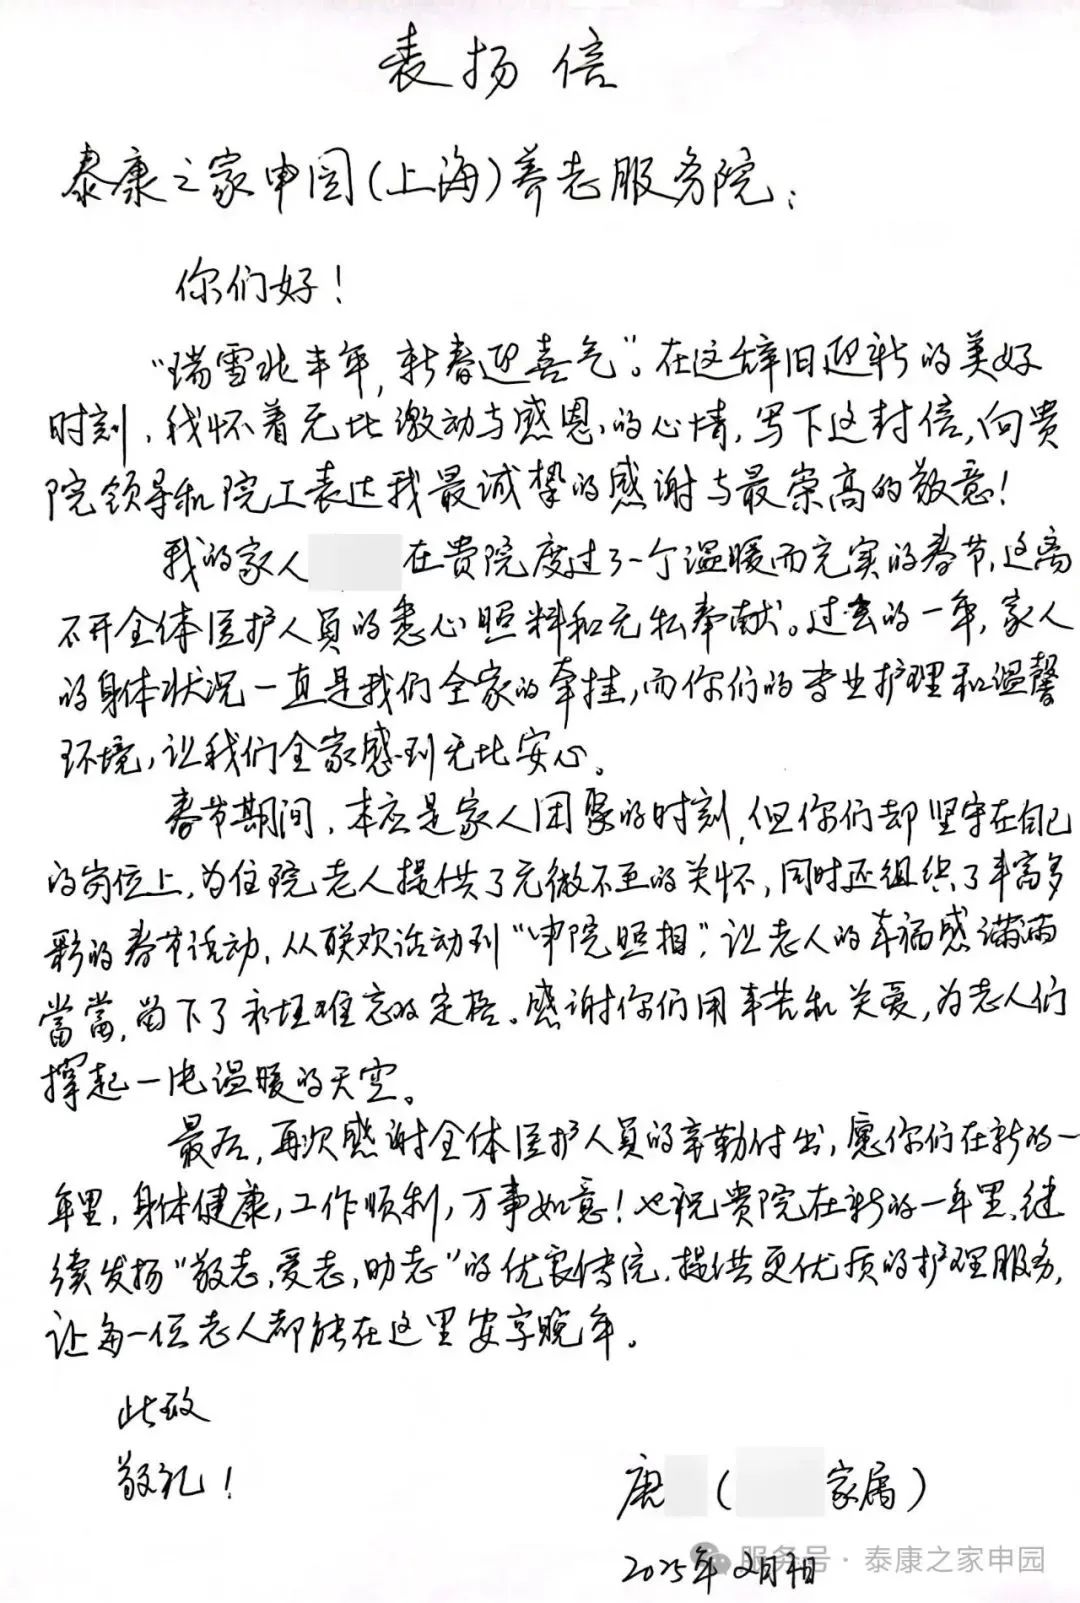 表扬信
泰康之家申园(上海)养老服务院：
你们好！
“瑞雪兆丰年，新春迎喜气”。在这辞旧迎新的美好
时刻，我怀着无比激动与感恩的心情，写下这封信，向贵
院领导和院工表达我最诚挚的感谢与最崇高的敬意！
我的家人 在贵院度过了一个温暖而充实的春节，这离
不开全体医护人員的悉心照料和无私奉献。过去的一年，家人
的身体状况一直是我们全家的牵挂，而你们的专业护理和温馨
环境，让我们全家感到无比安心。
春节期间，本应是家人团聚的时刻，但你们却坚守在自己
的岗位上，为住院老人提供了无微不至的关怀，同时还组织了丰富多
彩的春节活动，从联欢活动到“申院照相”，让老人的幸福感满满
當當，留下了永恒难忘的定格。感谢你们用辛苦和关爱，为老人们
撑起一片温暖的天空。
最后，再次感谢全体医护人員的辛勤付出，愿你们在新的一
年里，身体健康，工作顺利，万事如意！也祝贵院在新的一年里，继
续发扬“敬老，爱老，助老”的优良传统，提供更优质的护理服务，
让每一位老人都能在这里安享晚年。
此致
敬礼！
唐 ( 家属)
2025年2月 日
服务号·泰康之家申园